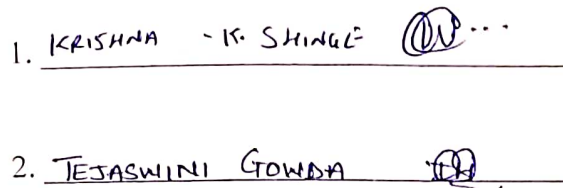 1. KRISHNA - K. SHINGE
2. TEJASWINI GOWDA